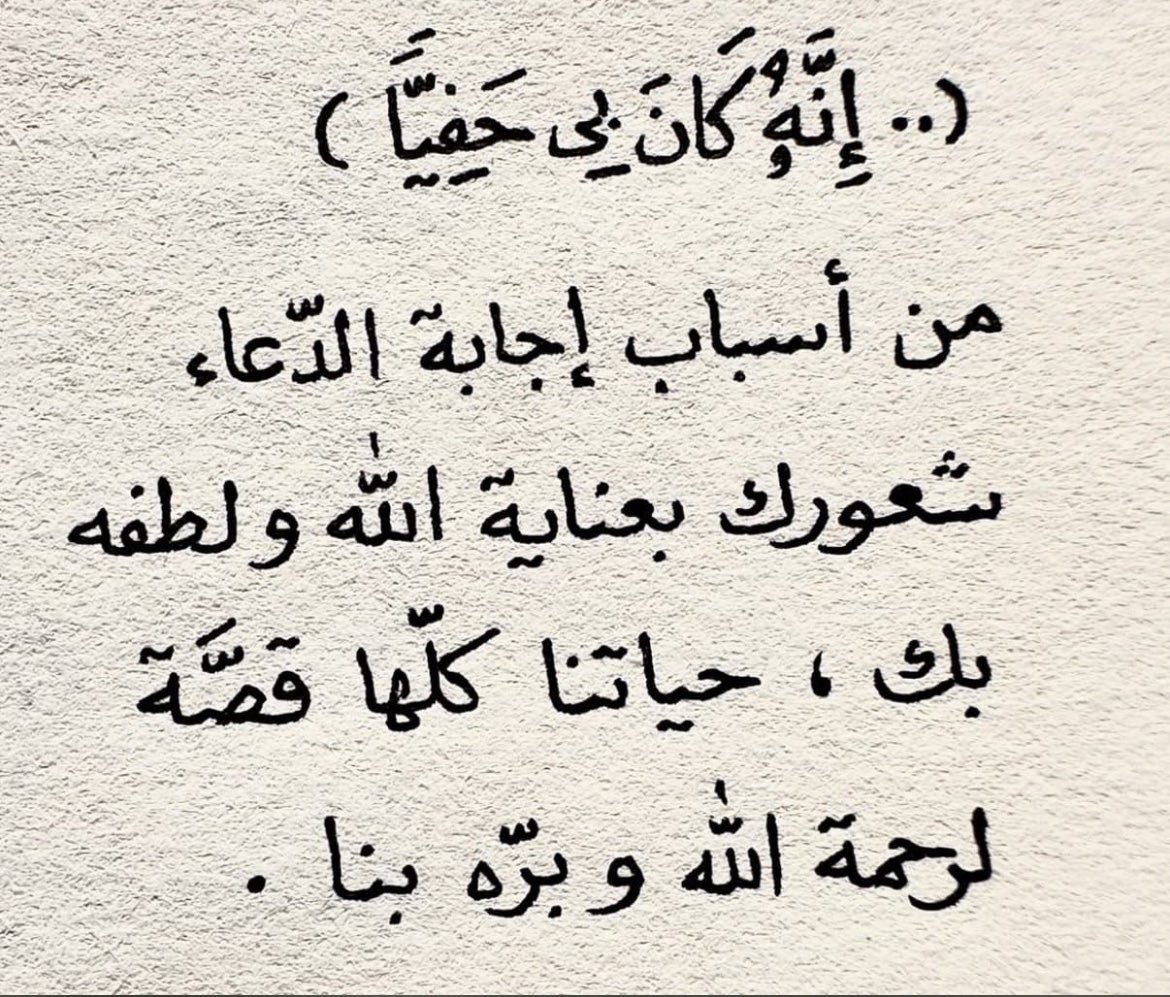 (.. إِنَّهُۥ كَانَ بِى حَفِيًّا )
من أسباب إجابة الدّعاء
شعورك بعناية الله ولطفه
بك ، حياتنا كلّها قصَّة
لرحمة الله وبرّه بنا .